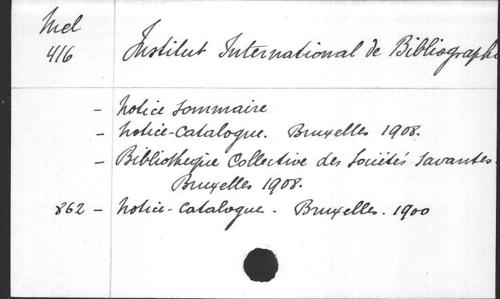 Mel
416 Institut International de Bibliographi
- Notice sommaire
- Notice-Catalogue. Bruxelles 1908.
- Bibliothèque Collective des Sociétés savantes.
Bruxelles 1908.
862 - Notice-Catalogue - Bruxelles. 1900